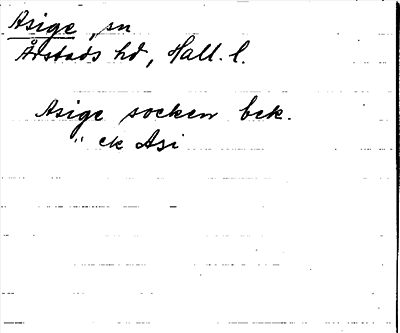 Asige, sn
Årstads hd, Hall. l.
Asige socken bek.
" ek Asi